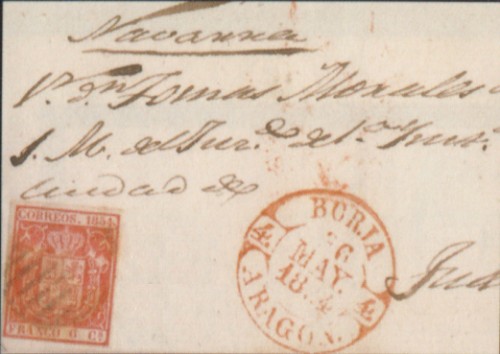 Navarra
Dn Tomas Morales
S. M. del Jur.do de 1.a Ins.
ciudad de
Tud
CORREOS. 1854
FRANCO 6 Cs
BORJA
26
MAY.
1854
4 4
ARAGON.